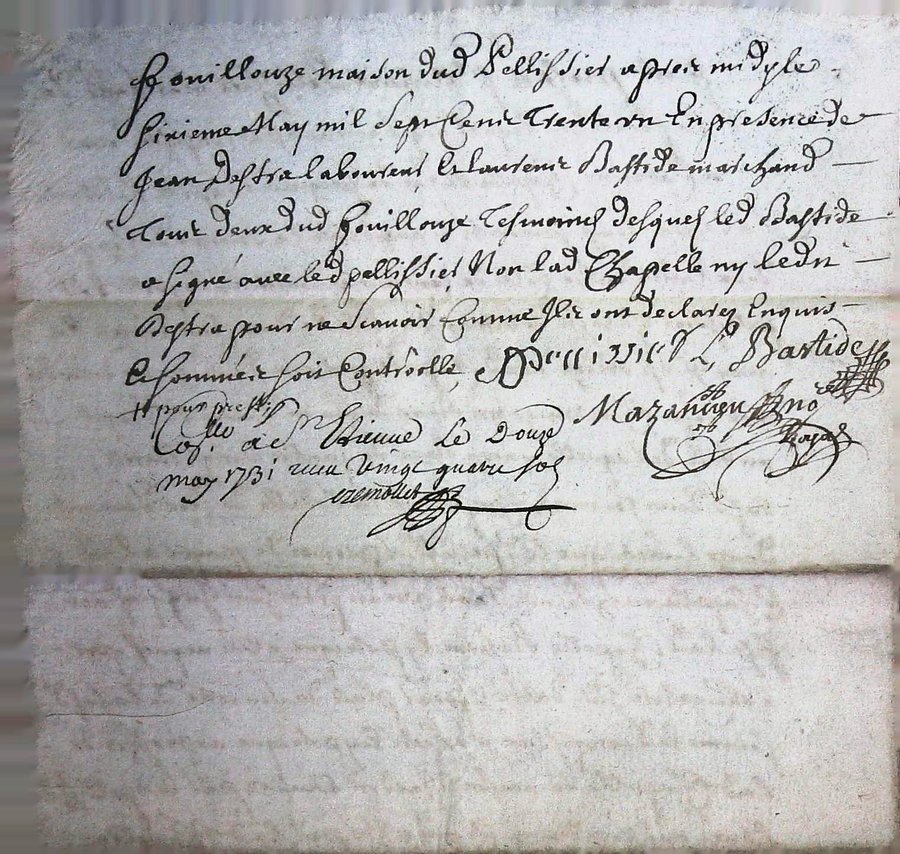 fouillouze maison dud Pellissier apres midy le
sixieme May mil Sept Cent Trente un En presence de
Jean Destra laboureur et laurent Bastide marchand
Tous deux dud fouillouze Tesmoins desquels led Bastide
a signé avec led pellissier Non lad Chapelle ny led
Destra pour ne Scavoir Comme Ils ont declaré Enquis
et sommés soit Controlle Pellissier L Bastide
Mazancieu no
Royal
Collé a St Etienne Le Douze
may 1731 receu Vingt quatre sols